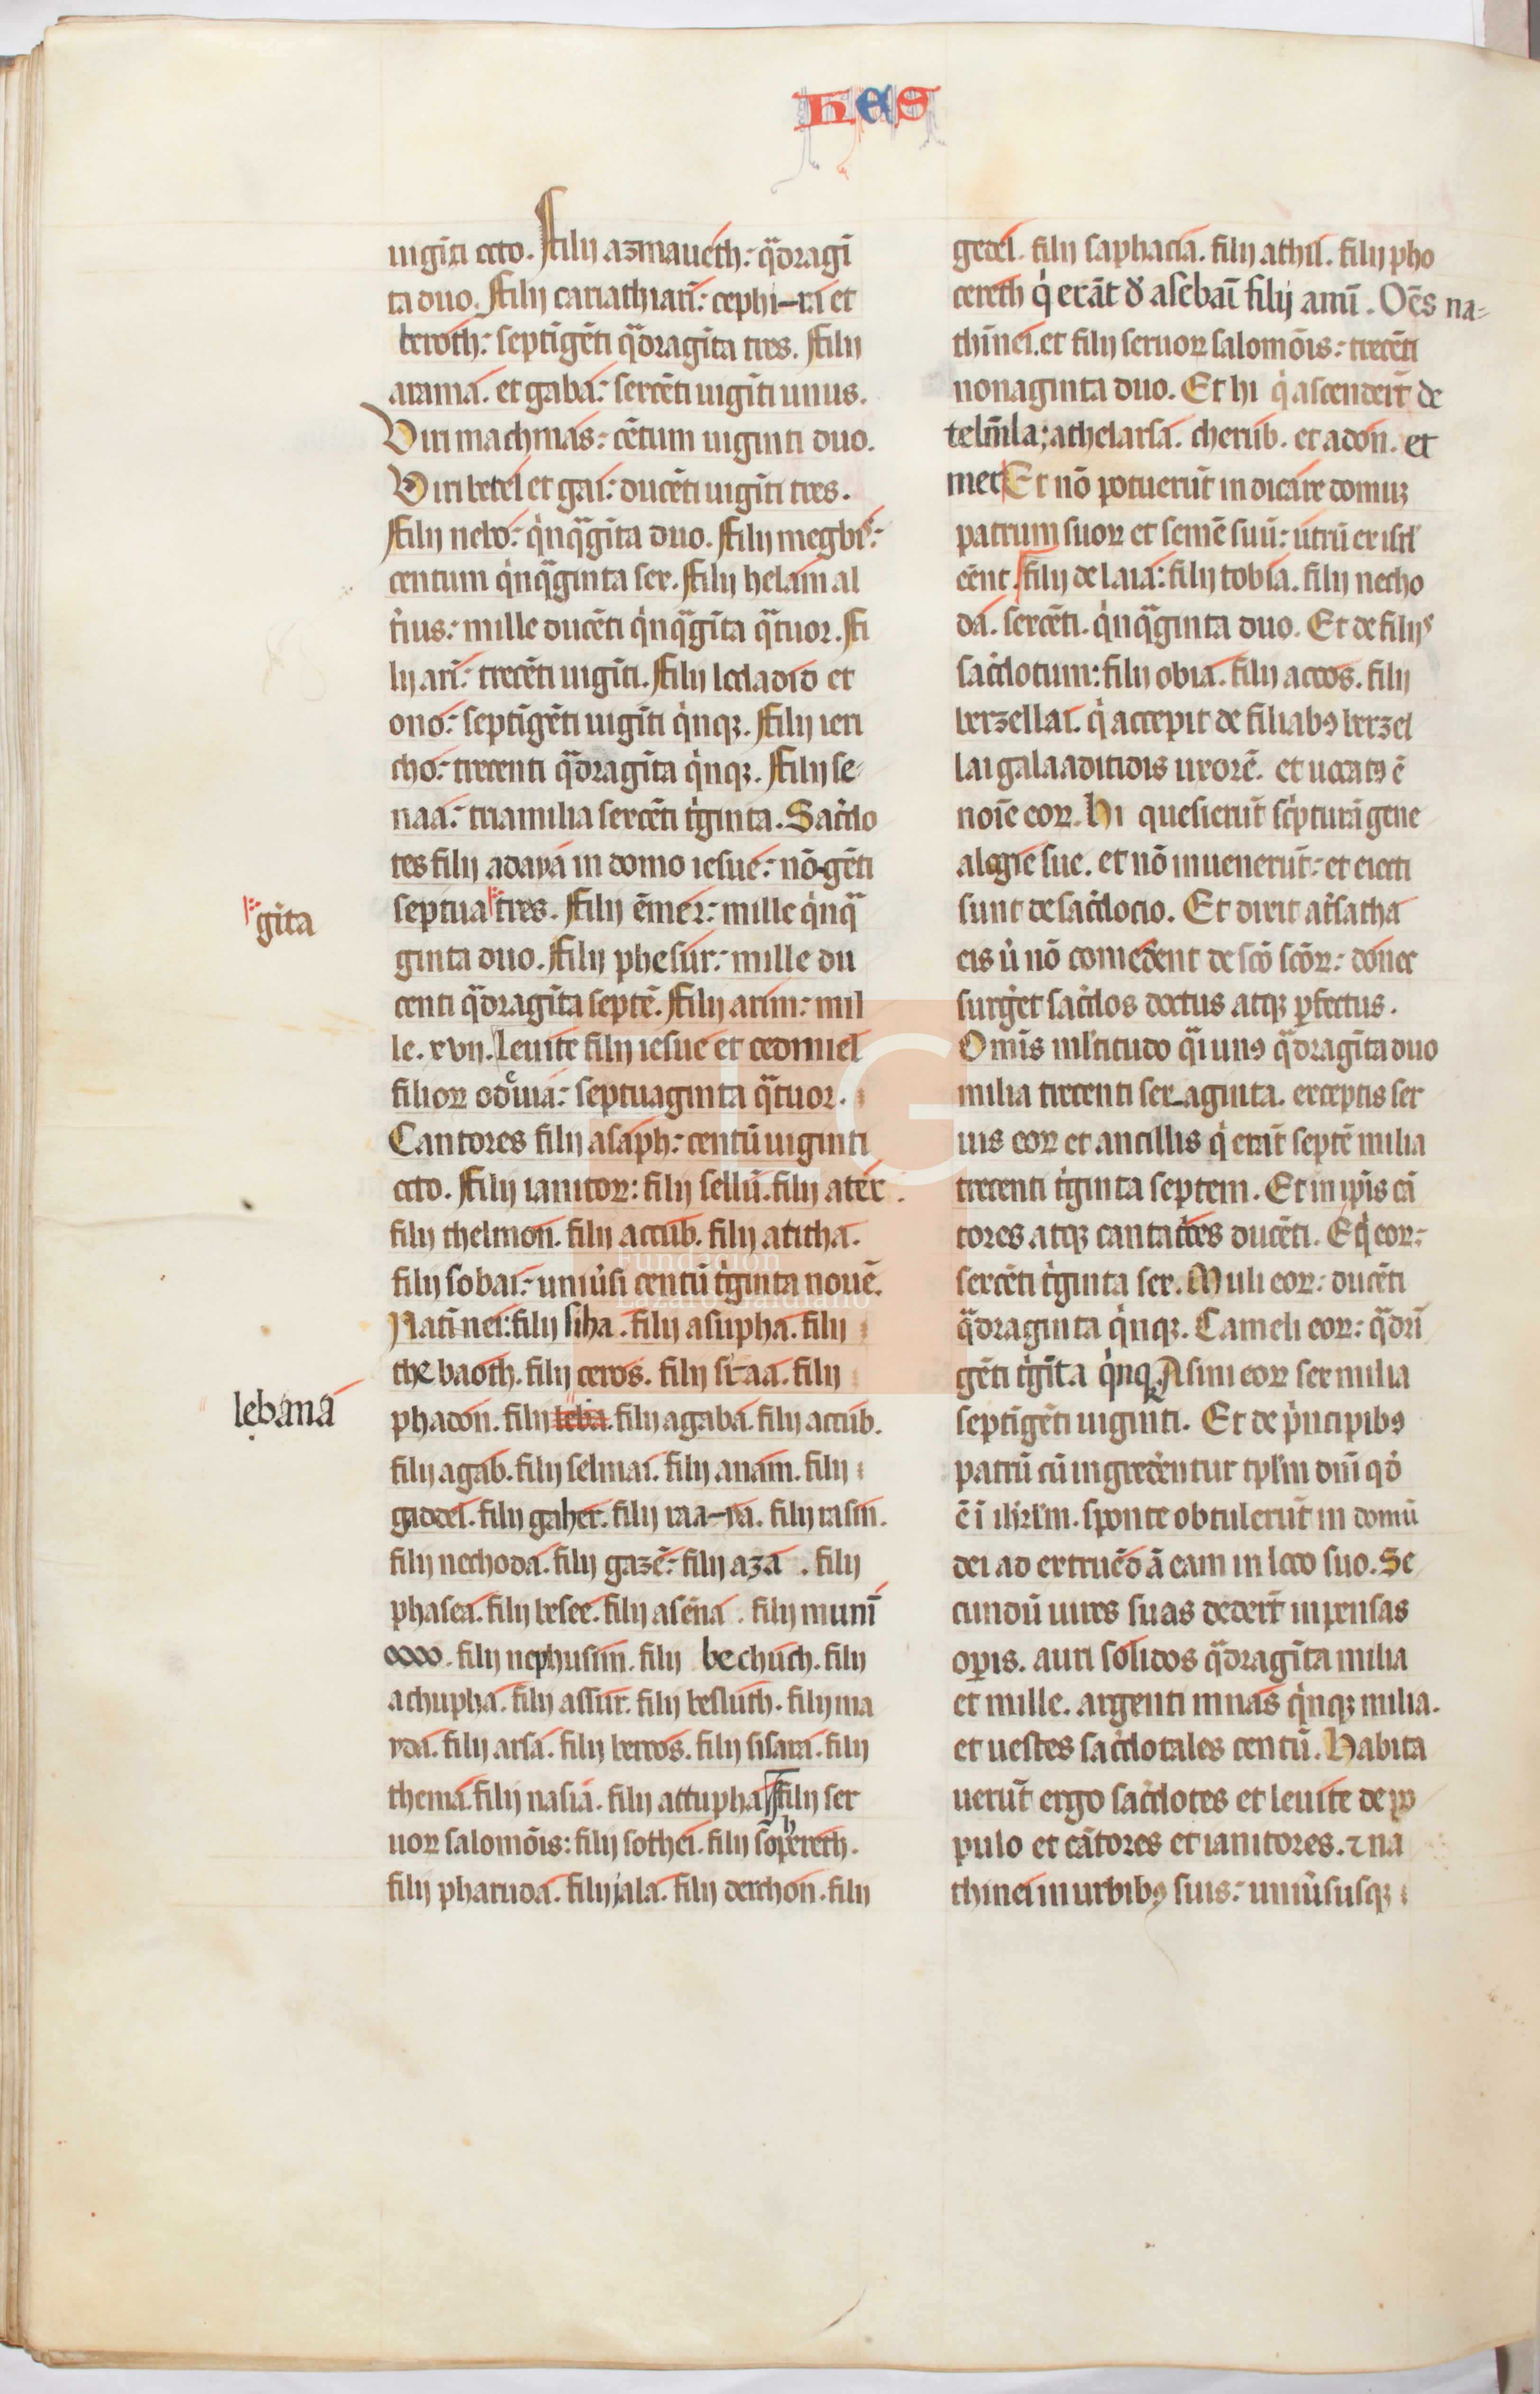 nes
uigĩti octo. Filij azmaueth: qͣdragĩ
ta duo. Filij cariathiarĩ: cephi–ra et
beroth: septĩgẽti qͣdragĩta tres. Filij
arama. et gaba: sexcẽti uigĩti unus.
Viri machmas: cẽtum uiginti duo.
Viri betel et gai: ducẽti uigĩti tres.
Filij nebo: qͥnqͣgĩta duo. Filij megbis:
centum qͥnqͣginta sex. Filij helam al
tius: mille ducẽti qͥnqͣgĩta qͣtuor. Fi
lij arĩ: trecẽti uigĩti. Filij lodadid et
ono: septĩgẽti uigĩti qͥnqꝫ. Filij ieri
cho: trecenti qͣdragĩta qͥnqꝫ. Filij se
naa: triamilia sexcẽti tͥginta. Sac̃do
tes filij adaya in domo iesue: nõgẽti
gĩta
septua tres. Filij ẽmer: mille qͥnqͣ
ginta duo. Filij phesur: mille du
centi qͣdragĩta septẽ. Filij arim: mil
le. xvij. Leuite filij iesue et cedmiel
filioꝝ odeuia: septuaginta qͣtuor.
Cantores filij asaph: centũ uiginti
octo. Filij ianitoꝝ: filij sellũ. filij ater.
filij thelmon. filij accub. filij atitha.
filij sobai: uniũsi centũ tͥginta nouẽ.
Natĩnei: filij siha. filij asupha. filij
thebaoth. filij ceros. filij siaa. filij
lebana
phadon. filij leba. filij agaba. filij accub.
filij agab. filij selmai. filij anam. filij
gaddel. filij gaher. filij raa–ia. filij rasin.
filij nechoda. filij gazẽ: filij aza. filij
phasea. filij besee. filij asẽna. filij munĩ
filij nephusim. filij bechuch. filij
achupha. filij assur. filij besluth. filij ma
yda. filij arsa. filij bercos. filij sisara. filij
thema. filij nasia. filij attupha filij ser
uoꝝ salomõis: filij sothei. filij sophereth.
filij pharuda. filij iala. filij derchon. filij
gedel. filij saphacia. filij athil. filij pho
cereth qͥ erãt d̃ asebaĩ filij amĩ. Oẽs na=
thĩnei. et filij seruoꝝ salomõis: trecẽti
nonaginta duo. Et hi qͥ ascendert̃ de
telm̃la; athelarsa. cherub. et adon. et
mer Et nõ potuerũt indicare domuꝫ
patrum suoꝝ et semẽ suũ: utrũ ex isrl̃
eẽnt. filij delaia: filij tobia. filij necho
da. sexcẽti. qͥnqͣginta duo. Et de filijs
sac̃dotum: filij obia. filij accos. filij
berzellai. qͥ accepit de filiabꝰ berzel
lai galaaditidis uxorẽ. et uocatꝰ ẽ
noĩe eoꝝ. Hi quesierũt sc̃pturã gene
alogie sue. et nõ inuenerũt: et eiecti
sunt de sac̃docio. Et dixit atͬsatha
eis ũ nõ comedẽnt de scõ scõꝝ: donec
surg̃et sac̃dos doctus atqꝫ p̃fectus.
Omĩs ml̃titudo qͣi unꝰ qͣdragĩta duo
milia trecenti sexaginta. exceptis ser
uis eoꝝ et ancillis qͥ erãt septẽ milia
trecenti tͥginta septem. Et in ip̃is cã
tores atqꝫ cantatͥces ducẽti. Eqͥ eoꝝ:
sexcẽti tͥginta sex. Muli eoꝝ: ducẽti
qͣdraginta qͥnqꝫ. Cameli eoꝝ: qͣdrĩ
gẽti tͥgĩta qͥnqꝫ Asini eoꝝ sex milia
septĩgẽti uiginti. Et de pͥncipibꝰ
patrũ cũ ingredeͬntur tp̃lm dñi qͦd
ẽ ĩ ihrl̃m. sponte obtulerũt in domũ
dei ad extruẽdã eam in loco suo. Se
cundũ uires suas dedert̃ inpensas
op̃is. auri solidos qͣdragĩta milia
et mille. argenti mnas qͥnqꝫ milia.
et uestes sac̃dotales centũ. Habita
uerũt ergo sac̃dotes et leuite de po
pulo et cãtores et ianitores. ⁊ na
thinei in urbibꝰ suis: uniũsusqꝫ
Fundación
Lázaro Galdiano